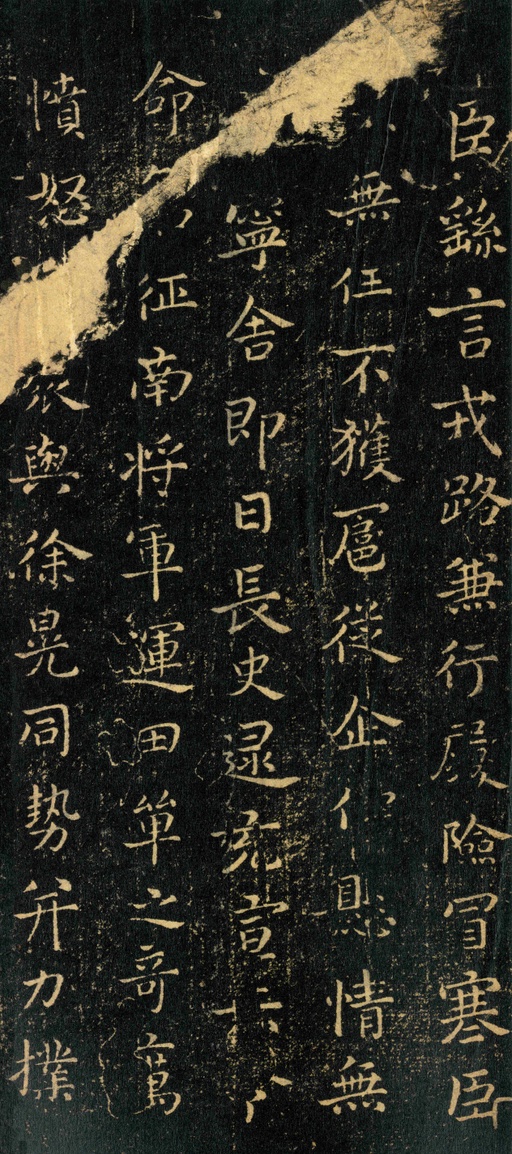 臣繇言戎路兼行履險冒寒臣
無任不獲扈從企仰懸情無
寧舍即日長史逯充宣示
命 征南将軍運田單之奇萬
憤怒 衆與徐晃同勢并力撲